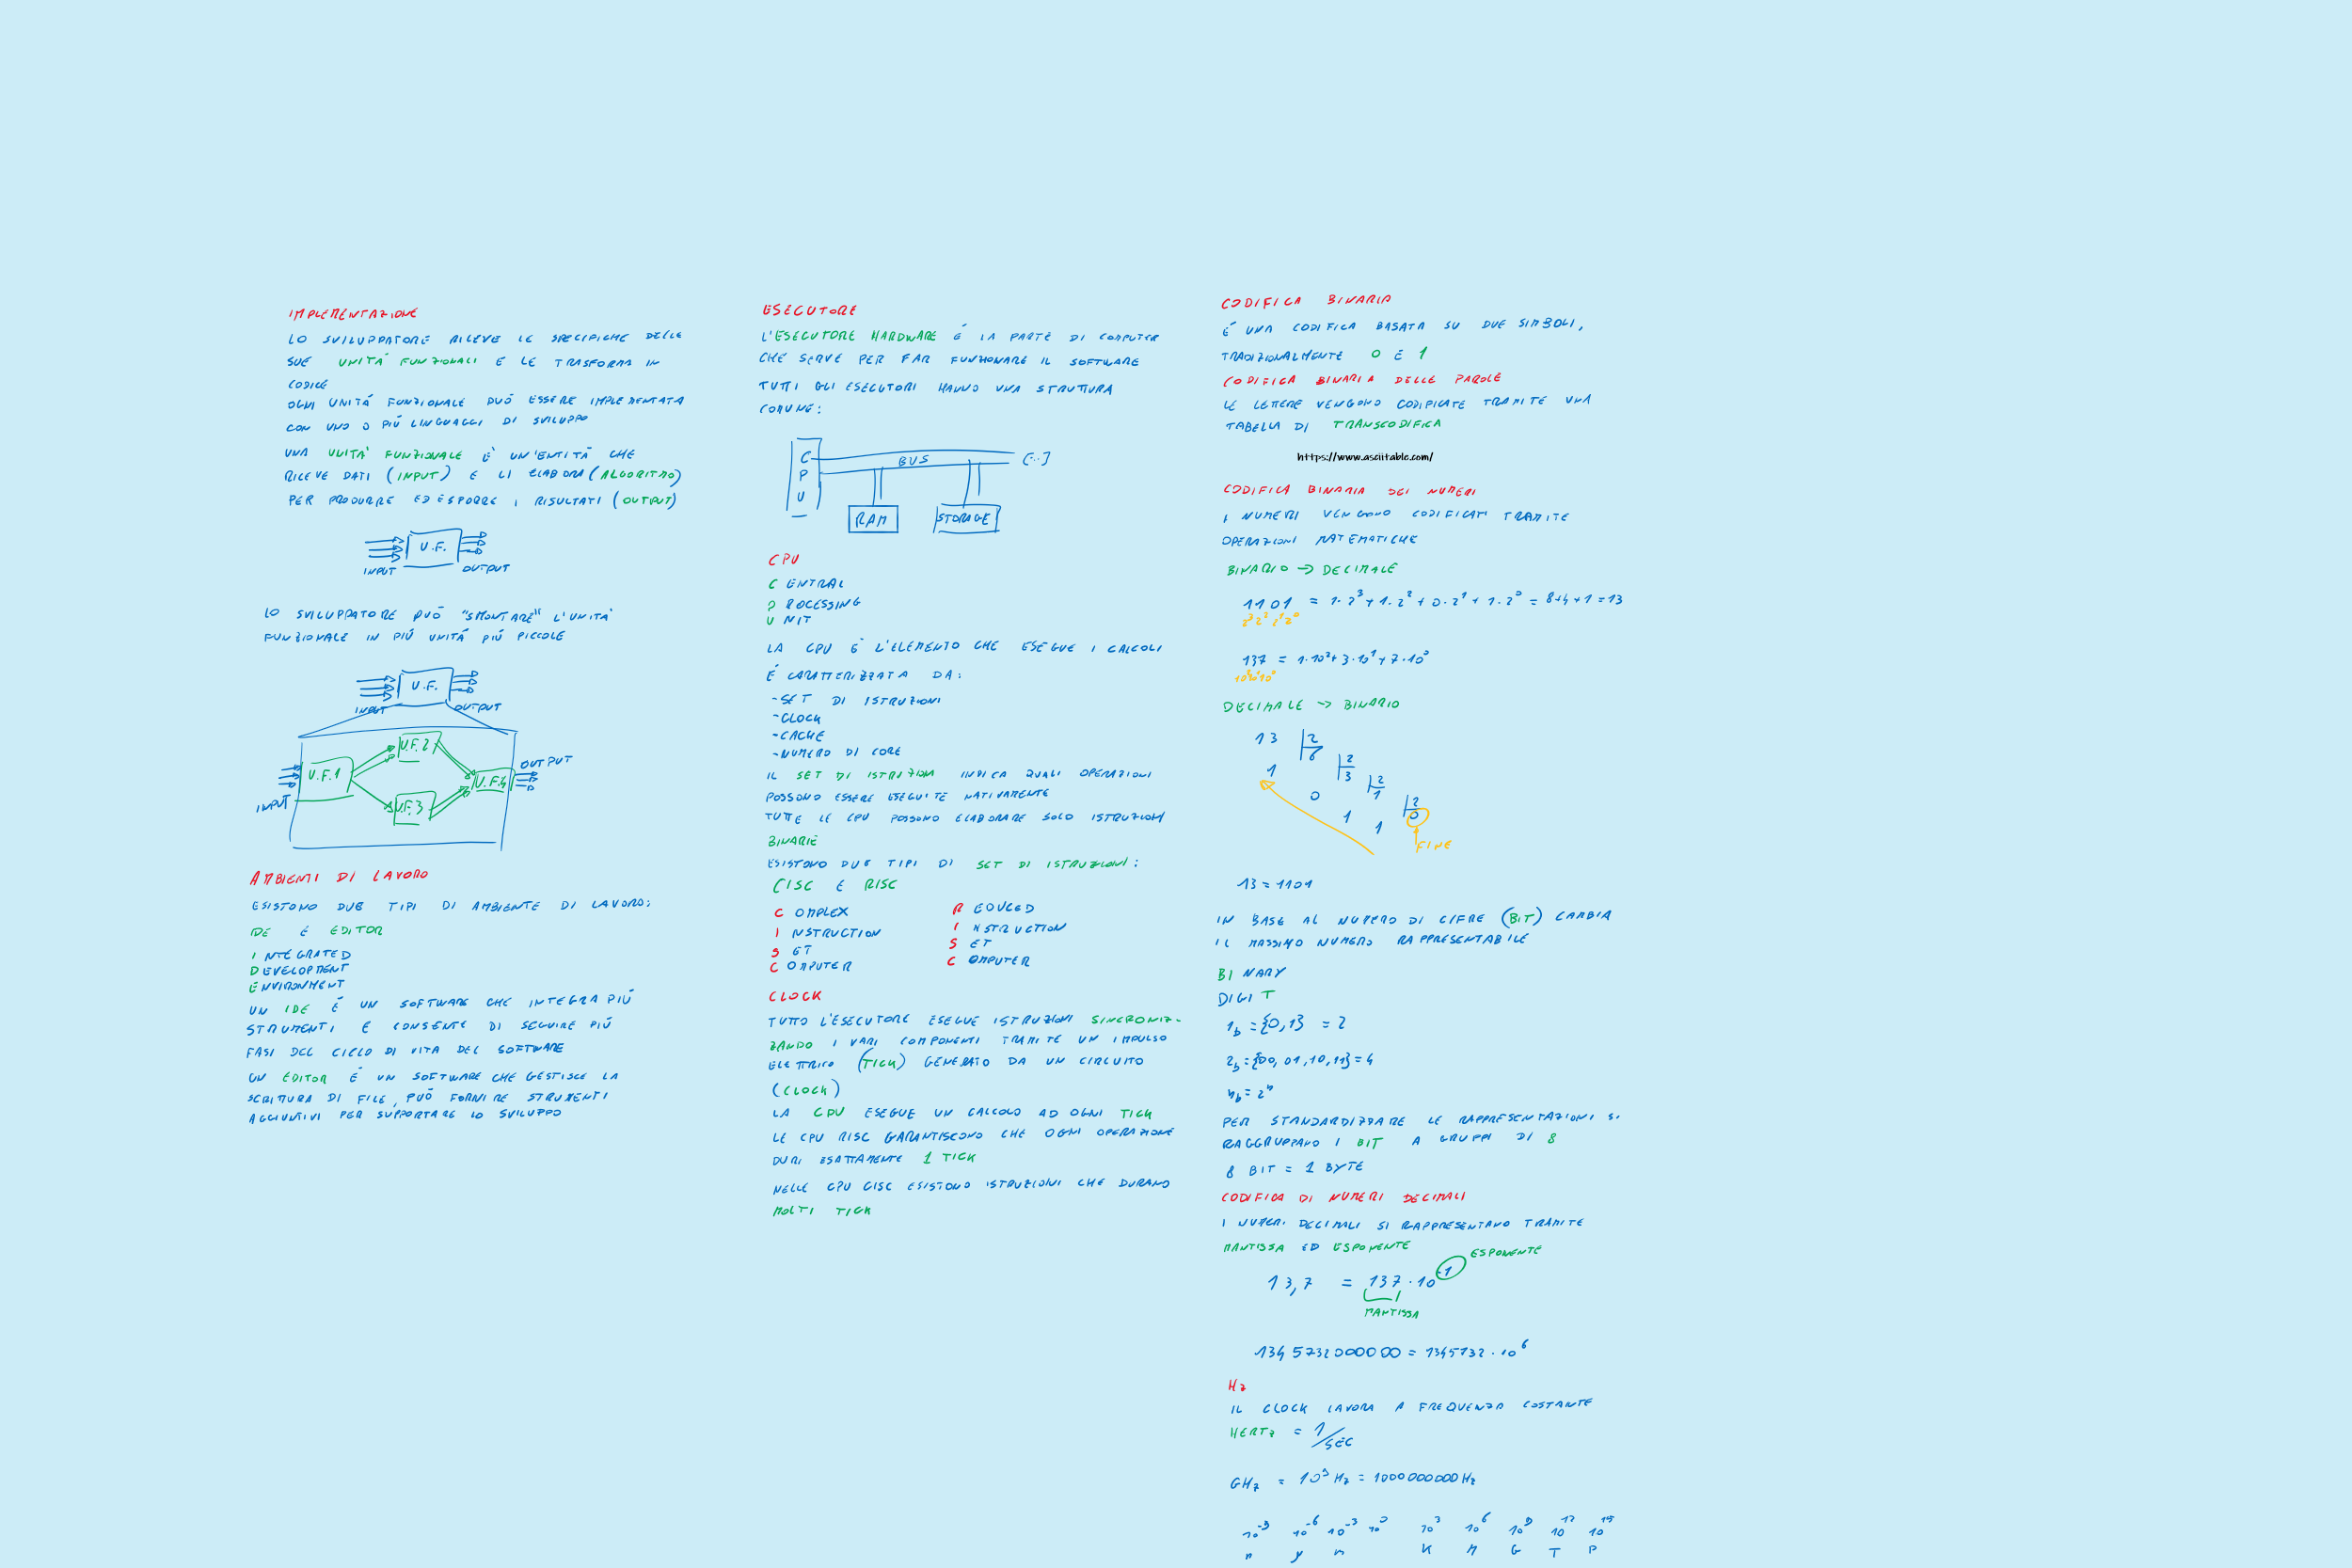 IMPLEMENTAZIONE
LO SVILUPPATORE RILEVE LE SPECIFICHE DELLE
SUE UNITÀ FUNZIONALI E LE TRASFORMA IN
CODICE
OGNI UNITÀ FUNZIONALE PUÒ ESSERE IMPLEMENTATA
CON UNO O PIÙ LINGUAGGI DI SVILUPPO
UNA UNITA' FUNZIONALE E' UN'ENTITÀ CHE
RICEVE DATI (INPUT) E LI ELABORA (ALGORITMO)
PER PRODURRE ED ESPORRE I RISULTATI (OUTPUT)
U.F.
INPUT
OUTPUT
LO SVILUPPATORE PUÒ "SMONTARE" L'UNITA'
FUNZIONALE IN PIÙ UNITÀ PIÙ PICCOLE
U.F.
INPUT
OUTPUT
U.F.2
U.F.1
OUTPUT
U.F.4
INPUT
U.F.3
AMBIENTI DI LAVORO
ESISTONO DUE TIPI DI AMBIENTE DI LAVORO:
IDE E EDITOR
INTEGRATED
DEVELOPMENT
ENVIRONMENT
UN IDE È UN SOFTWARE CHE INTEGRA PIÙ
STRUMENTI E CONSENTE DI SEGUIRE PIÙ
FASI DEL CICLO DI VITA DEL SOFTWARE
UN EDITOR È UN SOFTWARE CHE GESTISCE LA
SCRITTURA DI FILE, PUÒ FORNIRE STRUMENTI
AGGIUNTIVI PER SUPPORTARE LO SVILUPPO
ESECUTORE
L'ESECUTORE HARDWARE È LA PARTE DI COMPUTER
CHE SERVE PER FAR FUNZIONARE IL SOFTWARE
TUTTI GLI ESECUTORI HANNO UNA STRUTTURA
COMUNE:
CPU
BUS
[...]
RAM
STORAGE
CPU
CENTRAL
PROCESSING
UNIT
LA CPU È L'ELEMENTO CHE ESEGUE I CALCOLI
È CARATTERIZZATA DA:
-SET DI ISTRUZIONI
-CLOCK
-CACHE
-NUMERO DI CORE
IL SET DI ISTRUZIONI INDICA QUALI OPERAZIONI
POSSONO ESSERE ESEGUITE NATIVAMENTE
TUTTE LE CPU POSSONO ELABORARE SOLO ISTRUZIONI
BINARIE
ESISTONO DUE TIPI DI SET DI ISTRUZIONI:
CISC E RISC
COMPLEX
INSTRUCTION
SET
COMPUTER
REDUCED
INSTRUCTION
SET
COMPUTER
CLOCK
TUTTO L'ESECUTORE ESEGUE ISTRUZIONI SINCRONIZ-
ZANDO I VARI COMPONENTI TRAMITE UN IMPULSO
ELETTRICO (TICK) GENERATO DA UN CIRCUITO
(CLOCK)
LA CPU ESEGUE UN CALCOLO AD OGNI TICK
LE CPU RISC GARANTISCONO CHE OGNI OPERAZIONE
DURI ESATTAMENTE 1 TICK
NELLE CPU CISC ESISTONO ISTRUZIONI CHE DURANO
MOLTI TICK
CODIFICA BINARIA
È UNA CODIFICA BASATA SU DUE SIMBOLI,
TRADIZIONALMENTE 0 E 1
CODIFICA BINARIA DELLE PAROLE
LE LETTERE VENGONO CODIFICATE TRAMITE UNA
TABELLA DI TRANSCODIFICA
https://www.asciitable.com/
CODIFICA BINARIA DEI NUMERI
I NUMERI VENGONO CODIFICATI TRAMITE
OPERAZIONI MATEMATICHE
BINARIO -> DECIMALE
1101 = 1·2³ + 1·2² + 0·2¹ + 1·2⁰ = 8+4+1 = 13
2³ 2² 2¹ 2⁰
137 = 1·10² + 3·10¹ + 7·10⁰
10² 10¹ 10⁰
DECIMALE -> BINARIO
13 2
6 2
1 3 2
0 1 2
1 0
1
FINE
13 = 1101
IN BASE AL NUMERO DI CIFRE (BIT) CAMBIA
IL MASSIMO NUMERO RAPPRESENTABILE
BINARY
DIGIT
1b = {0,1} = 2
2b = {00, 01, 10, 11} = 4
nb = 2ⁿ
PER STANDARDIZZARE LE RAPPRESENTAZIONI SI
RAGGRUPPANO I BIT A GRUPPI DI 8
8 BIT = 1 BYTE
CODIFICA DI NUMERI DECIMALI
I NUMERI DECIMALI SI RAPPRESENTANO TRAMITE
MANTISSA ED ESPONENTE
ESPONENTE
13,7 = 137·10⁻¹
MANTISSA
1345732000000 = 1345732·10⁶
Hz
IL CLOCK LAVORA A FREQUENZA COSTANTE
HERTZ = 1/SEC
GHz = 10⁹ Hz = 1000000000 Hz
10⁻⁹ 10⁻⁶ 10⁻³ 10⁰ 10³ 10⁶ 10⁹ 10¹² 10¹⁵
n μ m K M G T P